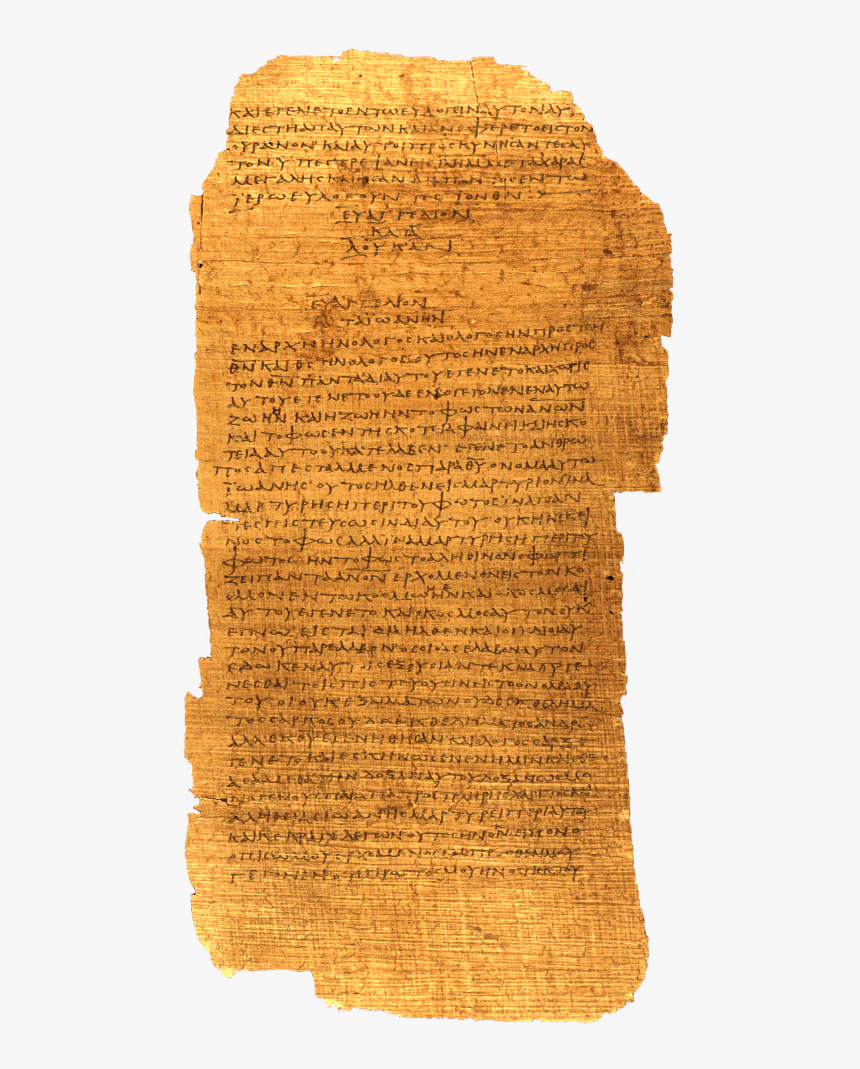 ΚΑΙ ΕΓΕΝΕΤΟ ΕΝ ΤΩ ΕΥΛΟΓΕΙΝ ΑΥΤΟΝ ΑΥΤ
ΔΙΕϹΤΗ ΑΠ ΑΥΤΩΝ ΚΑΙ ΑΝΕΦΕΡΕΤΟ ΕΙϹ ΤΟΝ
ΟΥΡΑΝΟΝ ΚΑΙ ΑΥΤΟΙ ΠΡΟϹΚΥΝΗϹΑΝΤΕϹ ΑΥ
ΤΟΝ ΥΠΕϹΤΡΕΨΑΝ ΜΕΤΑ ΧΑΡΑϹ
ΜΕΓΑΛΗϹ ΚΑΙ ΗϹΑΝ ΔΙΑ ΠΑΝΤΟϹ ΕΝ ΤΩ
ΪΕΡΩ ΕΥΛΟΓΟΥΝΤΕϹ ΤΟΝ Θ̅Ν̅
ΕΥΑΓΓΕΛΙΟΝ
ΚΑΤΑ
ΛΟΥΚΑΝ
ΕΥΑΓΓΕΛΙΟΝ
ΚΑΤΑ ΪΩΑΝΗΝ
ΕΝ ΑΡΧΗ ΗΝ Ο ΛΟΓΟϹ ΚΑΙ Ο ΛΟΓΟϹ ΗΝ ΠΡΟϹ ΤΟΝ
Θ̅Ν̅ ΚΑΙ Θ̅Ϲ̅ ΗΝ Ο ΛΟΓΟϹ ΟΥΤΟϹ ΗΝ ΕΝ ΑΡΧΗ ΠΡΟϹ
ΤΟΝ Θ̅Ν̅ ΠΑΝΤΑ ΔΙ ΑΥΤΟΥ ΕΓΕΝΕΤΟ ΚΑΙ ΧΩΡΙϹ
ΑΥΤΟΥ ΕΓΕΝΕΤΟ ΟΥΔΕ ΕΝ Ο ΓΕΓΟΝΕΝ ΕΝ ΑΥΤΩ
ΖΩΗ ΗΝ ΚΑΙ Η ΖΩΗ ΗΝ ΤΟ ΦΩϹ ΤΩΝ ΑΝΩΝ
ΚΑΙ ΤΟ ΦΩϹ ΕΝ ΤΗ ϹΚΟΤΕΙΑ ΦΑΙΝΕΙ ΚΑΙ Η ϹΚΟ
ΤΕΙΑ ΑΥΤΟ ΟΥ ΚΑΤΕΛΑΒΕΝ ΕΓΕΝΕΤΟ ΑΝΘΡΩ
ΠΟϹ ΑΠΕϹΤΑΛΜΕΝΟϹ ΠΑΡΑ Θ̅Υ̅ ΟΝΟΜΑ ΑΥΤΩ
ΪΩΑΝΗϹ ΟΥΤΟϹ ΗΛΘΕΝ ΕΙϹ ΜΑΡΤΥΡΙΟΝ ΙΝΑ
ΜΑΡΤΥΡΗϹΗ ΠΕΡΙ ΤΟΥ ΦΩΤΟϹ ΙΝΑ ΠΑΝ
ΤΕϹ ΠΙϹΤΕΥϹΩϹΙΝ ΔΙ ΑΥΤΟΥ ΟΥΚ ΗΝ ΕΚΕΙ
ΝΟϹ ΤΟ ΦΩϹ ΑΛΛ ΙΝΑ ΜΑΡΤΥΡΗϹΗ ΠΕΡΙ ΤΟΥ
ΦΩΤΟϹ ΗΝ ΤΟ ΦΩϹ ΤΟ ΑΛΗΘΙΝΟΝ Ο ΦΩΤΙ
ΖΕΙ ΠΑΝΤΑ ΑΝΟΝ ΕΡΧΟΜΕΝΟΝ ΕΙϹ ΤΟΝ ΚΟ
ϹΜΟΝ ΕΝ ΤΩ ΚΟϹΜΩ ΗΝ ΚΑΙ Ο ΚΟϹΜΟϹ ΔΙ
ΑΥΤΟΥ ΕΓΕΝΕΤΟ ΚΑΙ Ο ΚΟϹΜΟϹ ΑΥΤΟΝ ΟΥΚ
ΕΓΝΩ ΕΙϹ ΤΑ ΙΔΙΑ ΗΛΘΕΝ ΚΑΙ ΟΙ ΙΔΙΟΙ ΑΥ
ΤΟΝ ΟΥ ΠΑΡΕΛΑΒΟΝ ΟϹΟΙ ΔΕ ΕΛΑΒΟΝ ΑΥΤΟΝ
ΕΔΩΚΕΝ ΑΥΤΟΙϹ ΕΞΟΥϹΙΑΝ ΤΕΚΝΑ Θ̅Υ̅ ΓΕ
ΝΕϹΘΑΙ ΤΟΙϹ ΠΙϹΤΕΥΟΥϹΙΝ ΕΙϹ ΤΟ ΟΝΟΜΑ ΑΥ
ΤΟΥ ΟΙ ΟΥΚ ΕΞ ΑΙΜΑΤΩΝ ΟΥΔΕ ΕΚ ΘΕΛΗΜΑ
ΤΟϹ ϹΑΡΚΟϹ ΟΥΔΕ ΕΚ ΘΕΛΗΜΑΤΟϹ ΑΝΔΡΟϹ
ΑΛΛ ΕΚ Θ̅Υ̅ ΕΓΕΝΗΘΗϹΑΝ ΚΑΙ Ο ΛΟΓΟϹ ϹΑΡΞ Ε
ΓΕΝΕΤΟ ΚΑΙ ΕϹΚΗΝΩϹΕΝ ΕΝ ΗΜΙΝ ΚΑΙ ΕΘΕ
ΑϹΑΜΕΘΑ ΤΗΝ ΔΟΞΑΝ ΑΥΤΟΥ ΔΟΞΑΝ ΩϹ ΜΟ
ΝΟΓΕΝΟΥϹ ΠΑΡΑ ΠΑΤΡΟϹ ΠΛΗΡΗϹ ΧΑΡΙΤΟϹ ΚΑΙ
ΑΛΗΘΕΙΑϹ ΙΩΑΝΗϹ ΜΑΡΤΥΡΕΙ ΠΕΡΙ ΑΥΤΟΥ
ΚΑΙ ΚΕΚΡΑΓΕ ΛΕΓΩΝ ΟΥΤΟϹ ΗΝ ΟΝ ΕΙΠΟΝ Ο
ΟΠΙϹΩ ΜΟΥ ΕΡΧΟΜΕΝΟϹ ΕΜΠΡΟϹΘΕΝ ΜΟΥ
ΓΕΓΟΝΕΝ ΟΤΙ ΠΡΩΤΟϹ ΜΟΥ ΗΝ ΟΤΙ ΕΚ ΤΟΥ